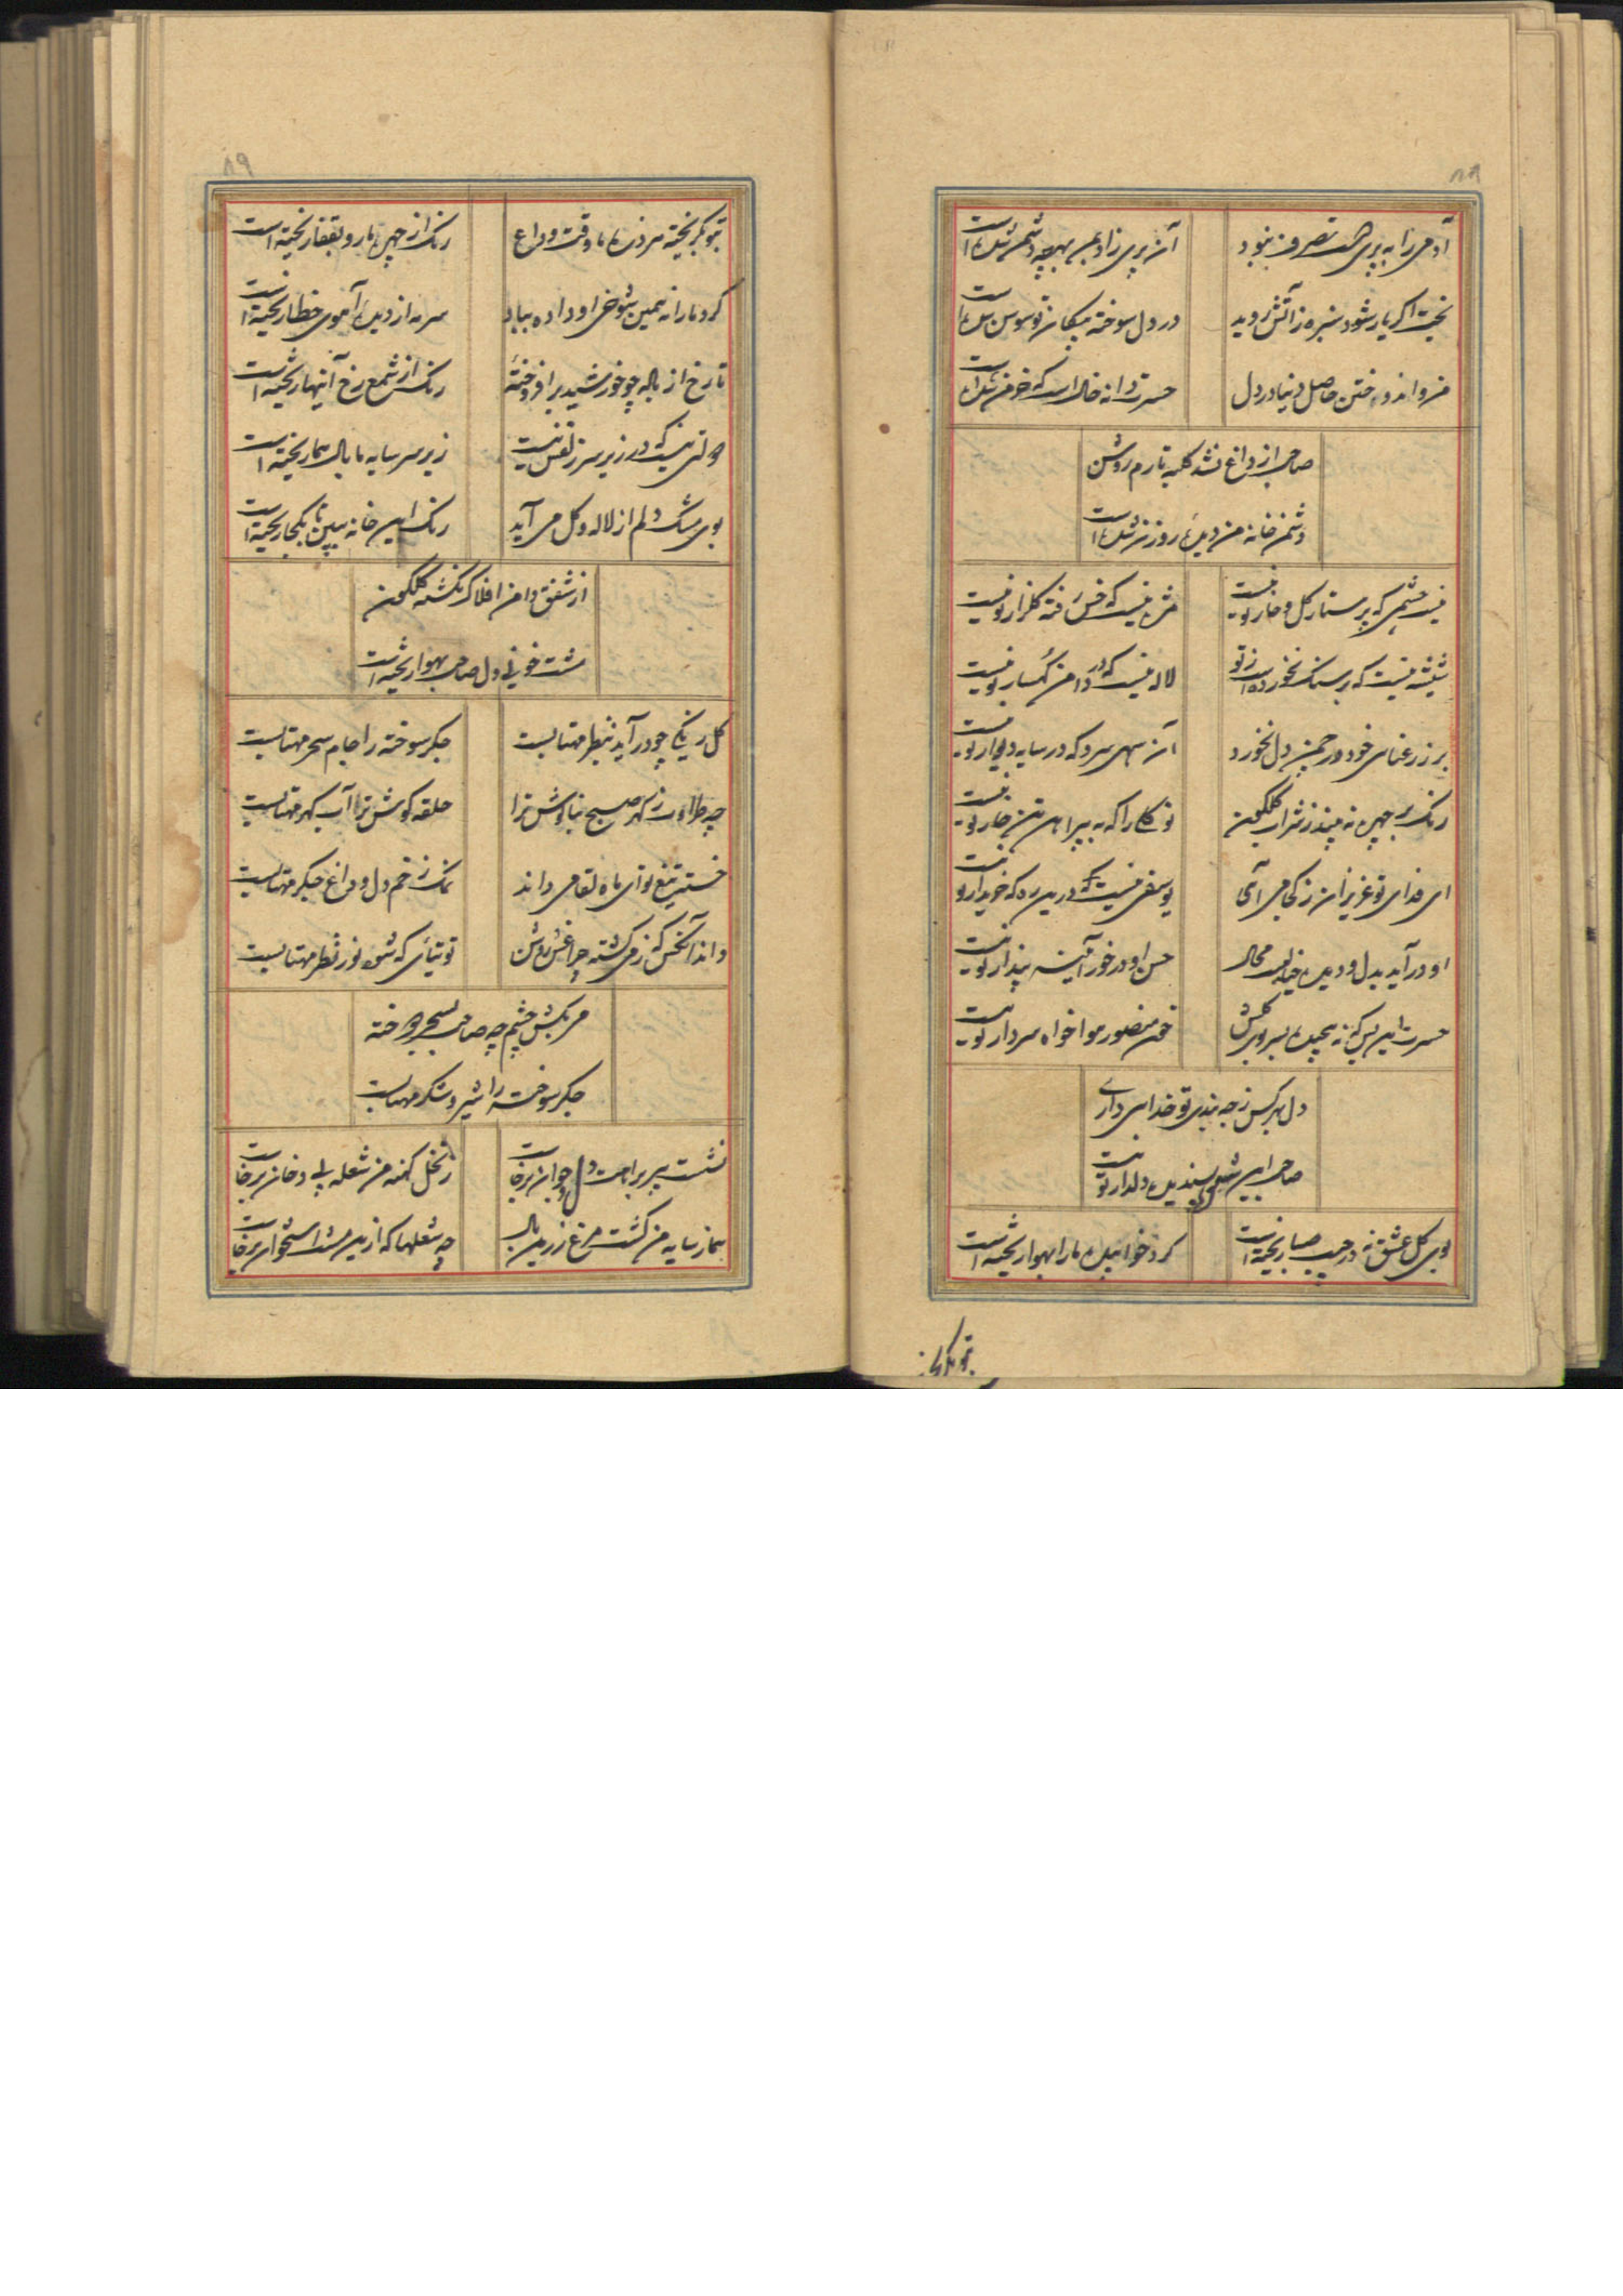 ۸۸
آدمی را به پری هست تصرف ز نبود آن پری زاد بمن بهر چه دشمن شده است
بخت اگر یار شود سبزه ز آتش روید در دل سوخته پیکان تو سوسن شده است
من و اندوختن حاصل دنیا در دل حسرت دانه خال است که خرمن شده است
صائب از داغ نشد کلبه تارم روشن
دشمن خانه من دیده روزن شده است
نیست چشمی که پرستار گل و خار تو نیست مژه نیست که خس رفته گلزار تو نیست
شیشه نیست که بر سنگ نخورده است ز تو لاله نیست که در دامن کهسار تو نیست
بر ز رعنایی خود در چمن دل نخورد آن سهی سرو که در سایه دیوار تو نیست
رنگ بر چهره نه بیند ز شراب گلگون نو بهاری که به پیراهن تن خار تو نیست
ای فدای تو عزیزان ز کجا می آئی یوسفی نیست که در مصر خریدار تو نیست
او در آید بدل و دیده خیالیست محال حسن او در خور آیینه پندار تو نیست
حسرت این بس که نه پیچیده بسر و برگش خون منصور هوا خواه سر دار تو نیست
دل هر کس ز چه بندی تو خدا بی داری
صائب این شیوه پسندیده دلدار تو نیست
بوی گل عشق نه در جیب صبا ریخته است گرد خوابیده ما را بهوا ریخته است
۸۹
تو که بگریخته سر زده ما وقت وداع رنگ از چهره ما رو بقفا ریخته است
گرد ما را نه همین شوخی او داده بباد سرمه از دیده آهوی خطا ریخته است
تا رخ از باله چو خورشید بر افروخته رنگ از شمع رخ آینه‌ها ریخته است
دولتی نیست که در زیر سر زلفش نیست زیر سر سایه ما بال هما ریخته است
بوی مشک دلم از لاله و گل می آید رنگ این خانه ببین تا بکجا ریخته است
از شفق دامن افلاک نگشته گلگون
مشت خونی دل صائب بهوا ریخته است
گل رنگی چو در آید بنظر مهتابست جگر سوخته را جام سحر مهتابست
چه طراوت ز گهر صبح بناگوش ترا حلقه گوش ترا آب گهر مهتابست
خستین تیغ تو ای ماه لقا می داند نمک زخم دل و داغ جگر مهتابست
داند آنکس که ز می گشته چراغش روشن توتیائی که شود نور نظر مهتابست
جگر سوخته را شیر و شکر مهتابست
نشست پیر برابت دل جوان برخاست ز نخل کهنه من شعله بی دخان برخاست
هما ز سایه من گشت مرغ زرین بال چه شعلها که ازین مشت استخوان برخاست